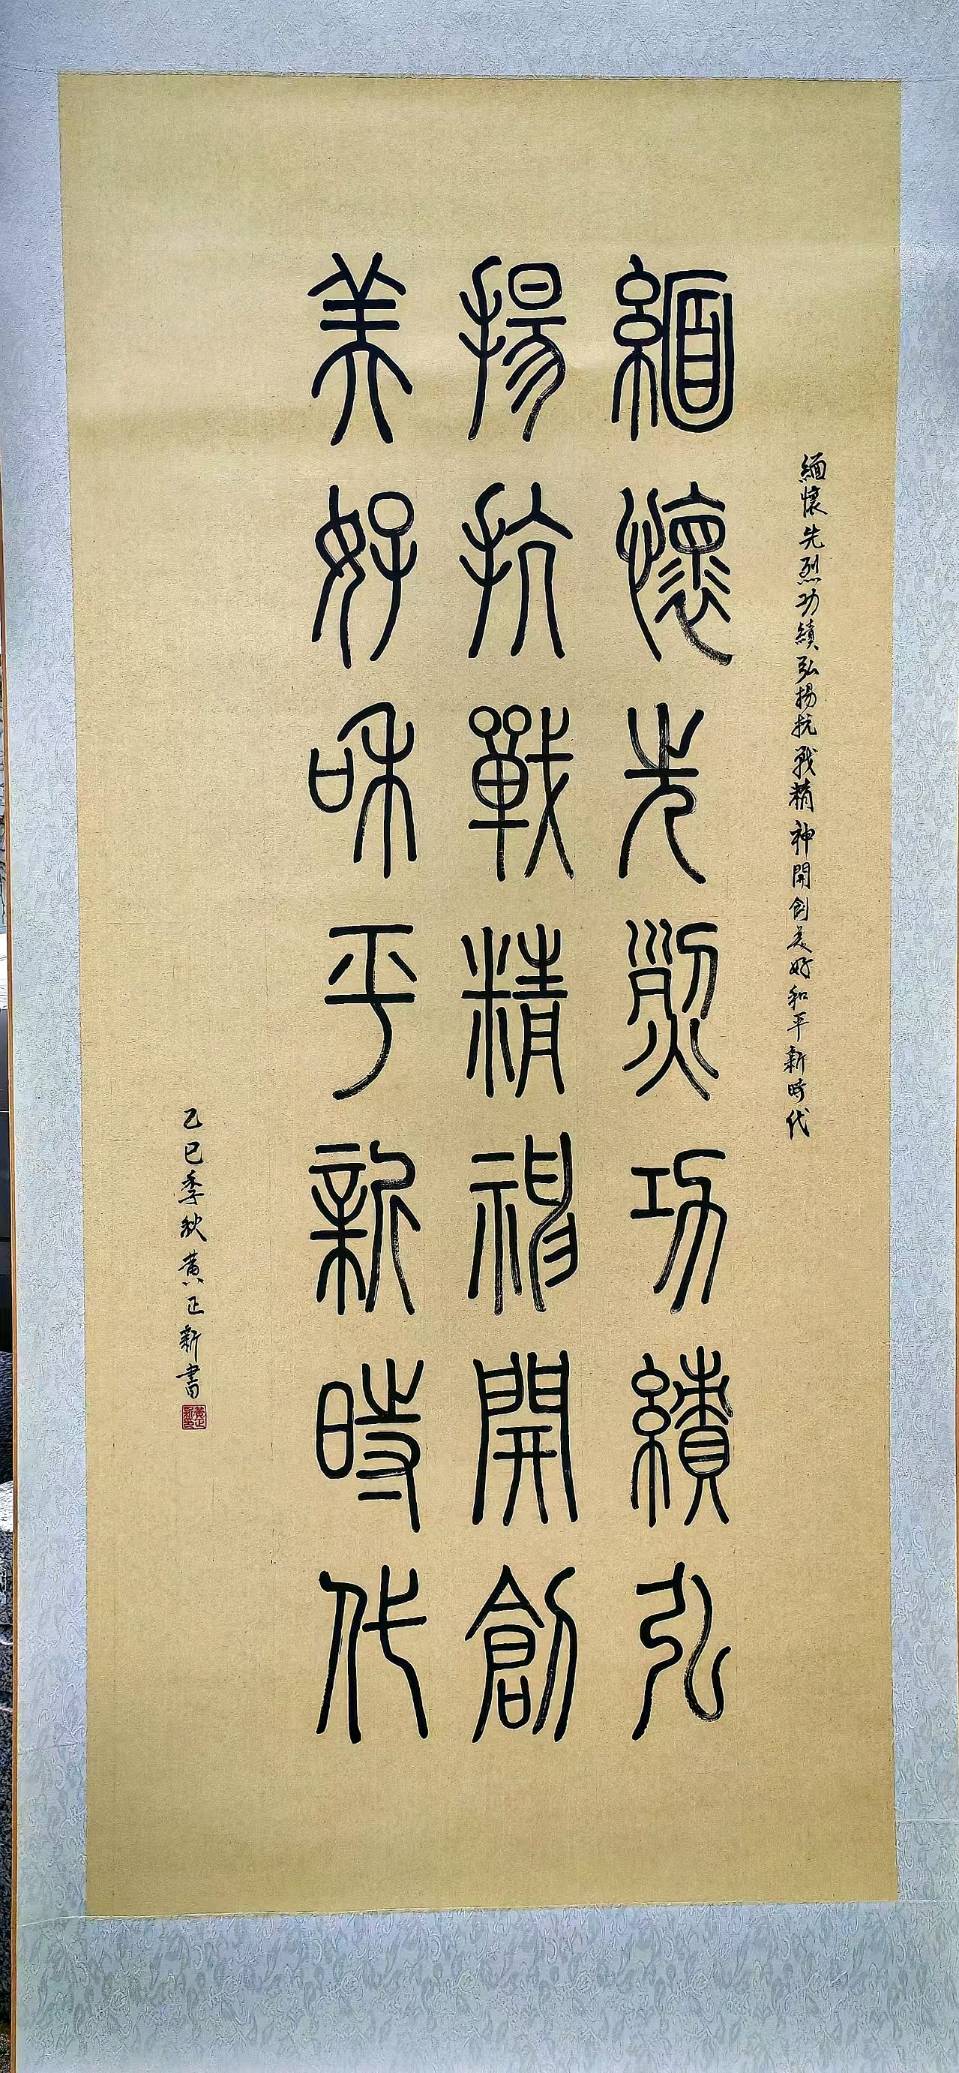 緬懷先烈功績弘揚抗戰精神開創美好和平新時代
緬懷先烈功績弘
揚抗戰精神開創
美好和平新時代
乙巳季秋黃正新書